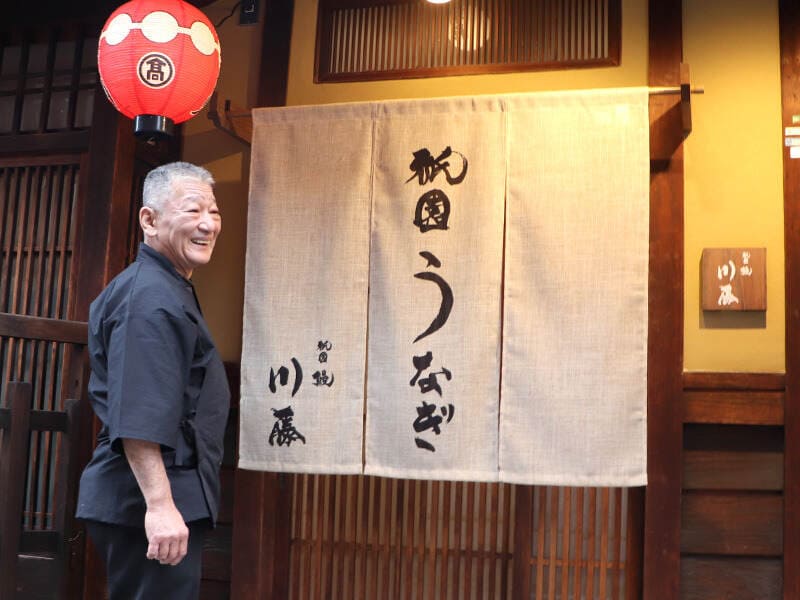 髙
祇園うなぎ
祇園
鰻
川藤
祇園
鰻
川藤